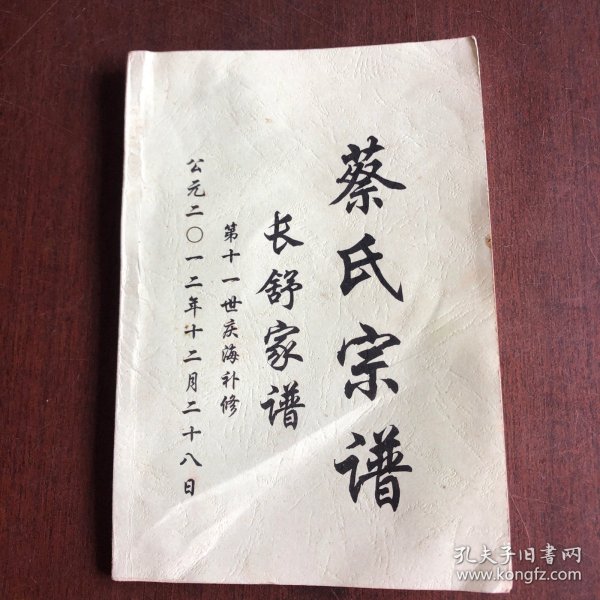 蔡氏宗谱
长舒家谱
第十一世庆海补修
公元二〇一二年十二月二十八日
孔夫子旧书网
www.kongfz.com